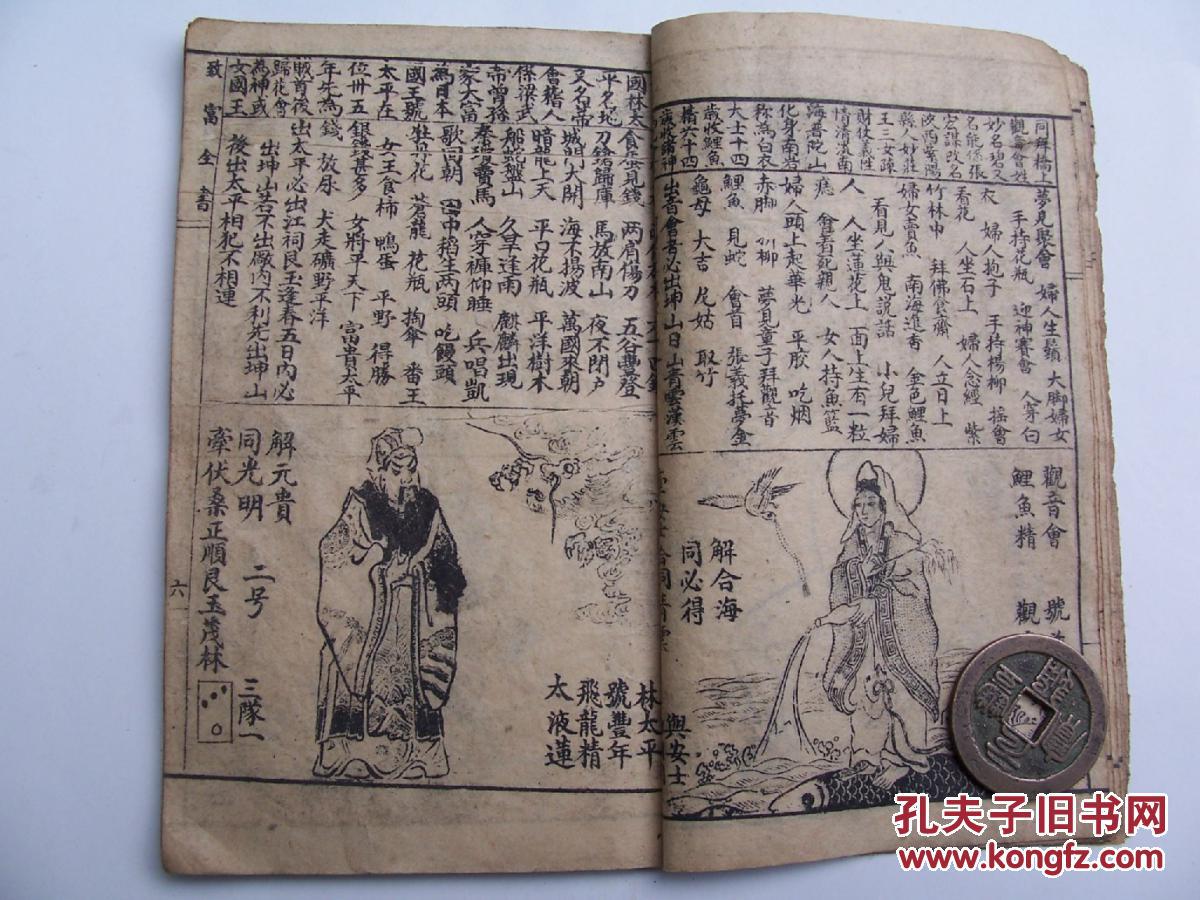 夢見聚會 婦人生鬍 大脚婦女
手持花瓶 迎神賽會 人穿白
衣 婦人抱子 手持楊柳 摇會
看花 人坐石上 婦人念經 紫
竹林中 拜佛食齋 人立日上
婦女賣魚 南海進香 金色鯉魚
看見人與鬼說話 小兒拜婦
人 人坐蓮花上 面上生有一粒
痣 會看記親人 女人持魚籃
婦人頭上起華光 平胶 吃烟
赤脚 圳柳 夢見童子拜觀音
鯉魚 見蛇 會首 張義托夢金
龜母 大吉 尼姑 取竹
出音會者必出坤山日山青雲漢雲
妙名碧又
名能係張
陝西
縣人妙莊
王三女
海普陀山
化身南岩
称為白衣
大士十四
歲收鯉魚
精六十四
觀音會 號
鯉魚精 觀
解合海
同必得
與安士
國林太
平名地
又名帝
會稽人
係梁武
帝曾孫
家大富
為日本
國王號
太平在
位卅五
年先為
賊首後
歸花會
為神或
女國王
食 見錢 两肩傷刀 五谷豐登
刀鎗歸庫 馬放南山 夜不閉户
城門大開 海不揚波 萬國來朝
暗龍上天 平口花瓶 平洋樹木
船蛇盤山 久旱逢雨 麒麟出現
秦瓊賣馬 人穿褲仰睡 兵唱凱
歌回朝 田中稻生两頭 吃饅頭
牡丹花 蒼龍 花瓶 掏傘 番王
女王食柿 鴨蛋 平野 得勝
銀錢甚多 女將平天下 富貴太平
錢 放尿 犬走礦野平洋
出太平必出江祠艮玉逢春五日内必
出坤山若不出廠内不利先出坤山
後出太平相犯不相連
致富全書
六
林太平
號豐年
飛龍精
太液蓮
解元貴
同光明 二号 三隊一
牽伏桑正順艮玉茂林
孔夫子旧书网
www.kongfz.com